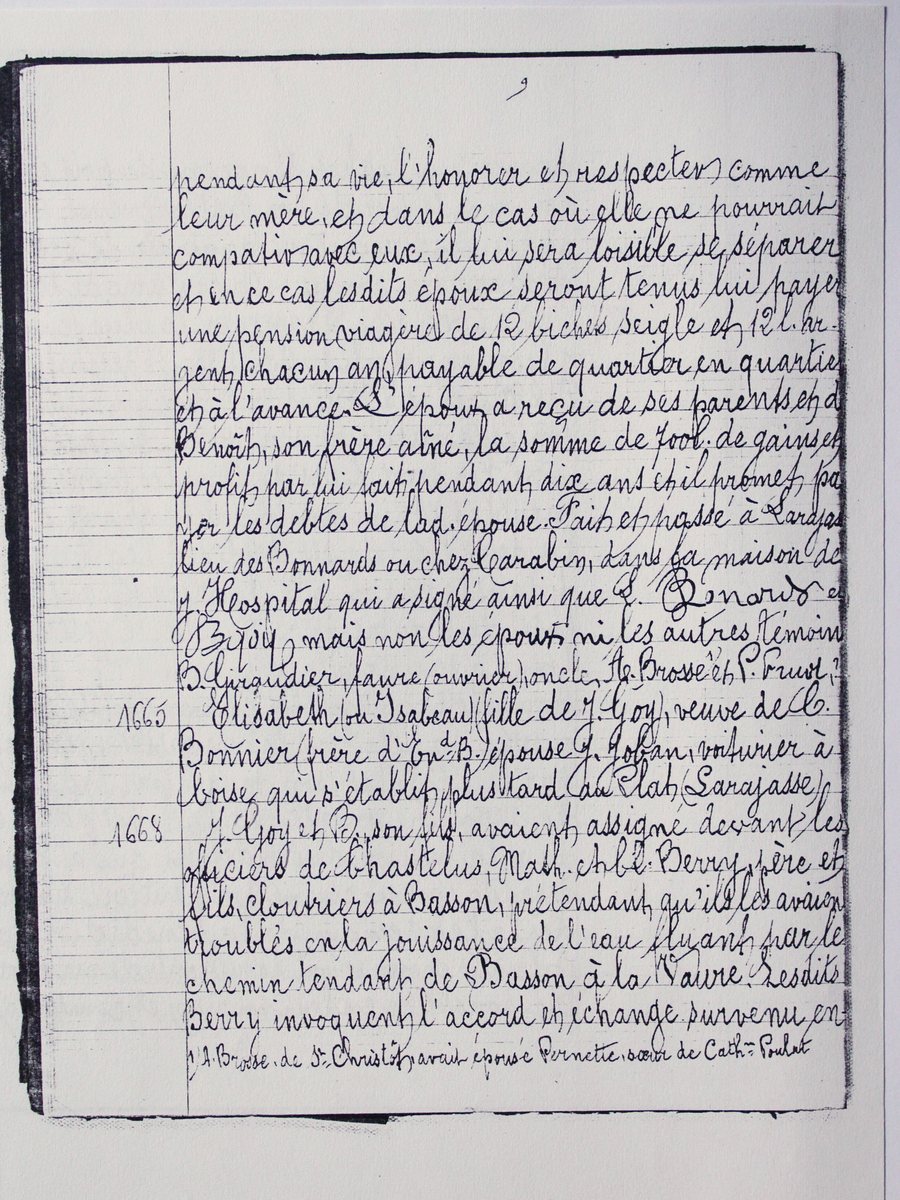 9
pendant sa vie, l'honorer et respecter comme
leur mère, et dans le cas où elle ne pourrait
compatir avec eux, il lui sera loisible se séparer
et en ce cas lesdits époux seront tenus lui payer
une pension viagère de 12 biches seigle et 12 l. ar-
gent, chacun an, payable de quartier en quartie
et à l'avance. L'époux a reçu de ses parents et d
Benoît, son frère aîné, la somme de 700l. de gains et
profit par lui fait pendant dix ans et il promet pa
yer les debtes de lad. épouse. Fait et passé à Larajas
lieu des Bonnards ou chez Carabin, dans la maison de
J. Hospital qui a signé ainsi que L. Bonard et
mais non les époux ni les autres témoin
B. Giraudier, favre (ouvrier), oncle, A. Brosse¹ et P.
1665 Elisabeth (ou Isabeau) (fille de J. Goy), veuve de C.
Bonnier (frère d'End B.) épouse J. Joban, voiturier à
boise qui s'établit plus tard au Plat (Larajasse)
1668 J. Goy et B., son fils, avaient assigné devant les
officiers de Chastelus, Math. et Cl. Berry, père et
fils, cloutriers à Basson, prétendant qu'ils les avaien
troublés en la jouissance de l'eau fluant par le
chemin tendant de Basson à la Vaure. Lesdits
Berry invoquent l'accord et échange survenu en-
1) A. Brosse, de St Christôt, avait épousé Pernette, sœur de Cathne Poulat